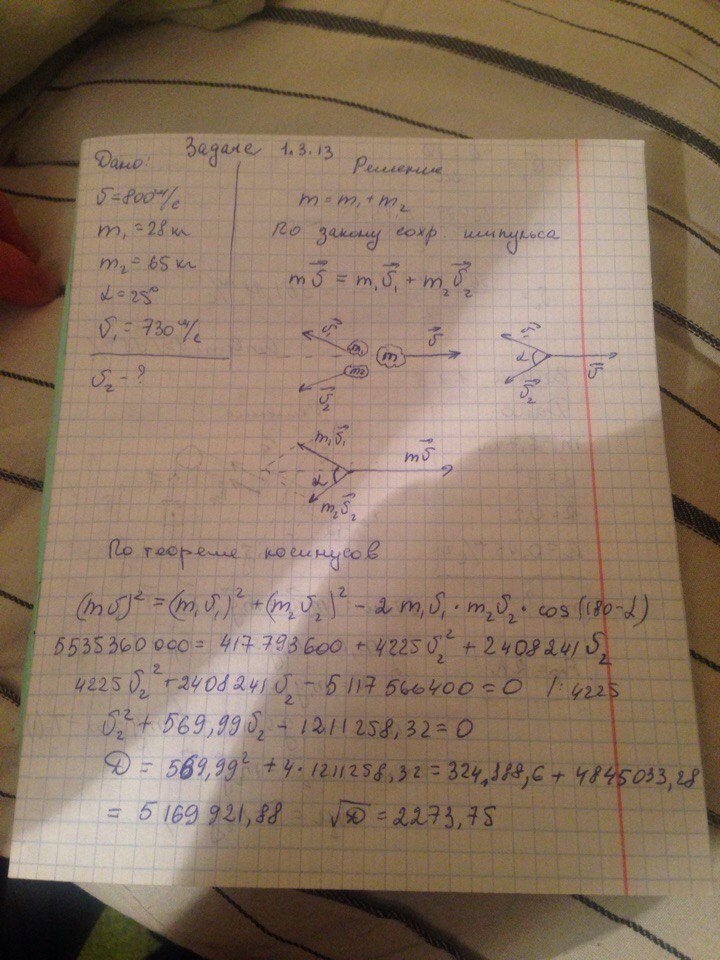 Задача 1.3.13
Дано:
Решение
υ = 800 м/с
m₁ = 28 кг
m₂ = 65 кг
α = 25°
υ₁ = 730 м/с
υ₂ - ?
m = m₁ + m₂
По закону сохр. импульса
mυ⃗ = m₁υ⃗₁ + m₂υ⃗₂
υ⃗₁ m₁ m υ⃗ m₂ υ⃗₂
υ⃗₁ α υ⃗ υ⃗₂
m₁υ⃗₁ mυ⃗
α m₂υ⃗₂
По теореме косинусов
(mυ)² = (m₁υ₁)² + (m₂υ₂)² - 2 m₁υ₁ · m₂υ₂ · cos(180-α)
5535360 000 = 417 793600 + 4225υ₂² + 2408241 υ₂
4225υ₂² + 2408241υ₂ - 5117566400 = 0 /: 4225
υ₂² + 569,99υ₂ - 1211258,32 = 0
D = 569,99² + 4·1211258,32 = 324 888,6 + 4845033,28
= 5169921,88 √D = 2273,75